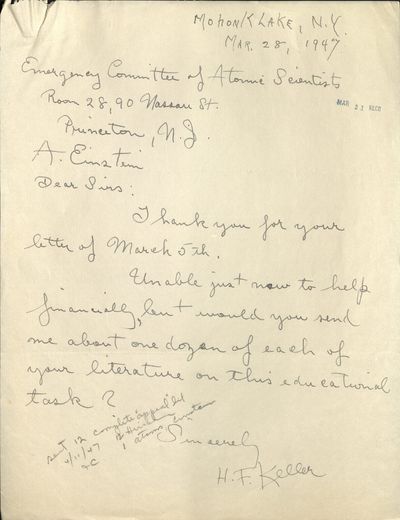 Mohonk Lake, N.Y.
Mar. 28, 1947
Emergency Committee of Atomic Scientists
Room 28, 90 Nassau St.
Princeton, N.J.
A. Einstein
Dear Sirs:
Thank you for your
letter of March 5th.
Unable just now to help
financially, but would you send
me about one dozen of each of
your literature on this educational
task?
Sincerely
H. F. Keller
MAR 31 RECD
sent 12 complete appeal
4/11/47
1 atomic Einstein